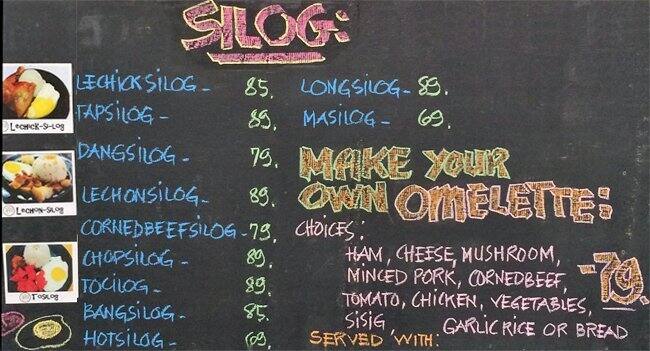 SILOG:
LECHICKSILOG - 85.
TAPSILOG - 89.
DANGSILOG - 79.
LECHONSILOG - 89.
CORNEDBEEFSILOG - 79.
CHOPSILOG - 89.
TOCILOG - 89.
BANGSILOG - 85.
HOTSILOG - 69.
LECHICK-SI-LOG
LECHON-SILOG
TOSILOG
LONGSILOG - 89.
MASILOG - 69.
MAKE YOUR
OWN OMELETTE:
CHOICES:
HAM, CHEESE, MUSHROOM,
MINCED PORK, CORNEDBEEF,
TOMATO, CHICKEN, VEGETABLES,
SISIG
-79.
SERVED WITH: GARLIC RICE OR BREAD